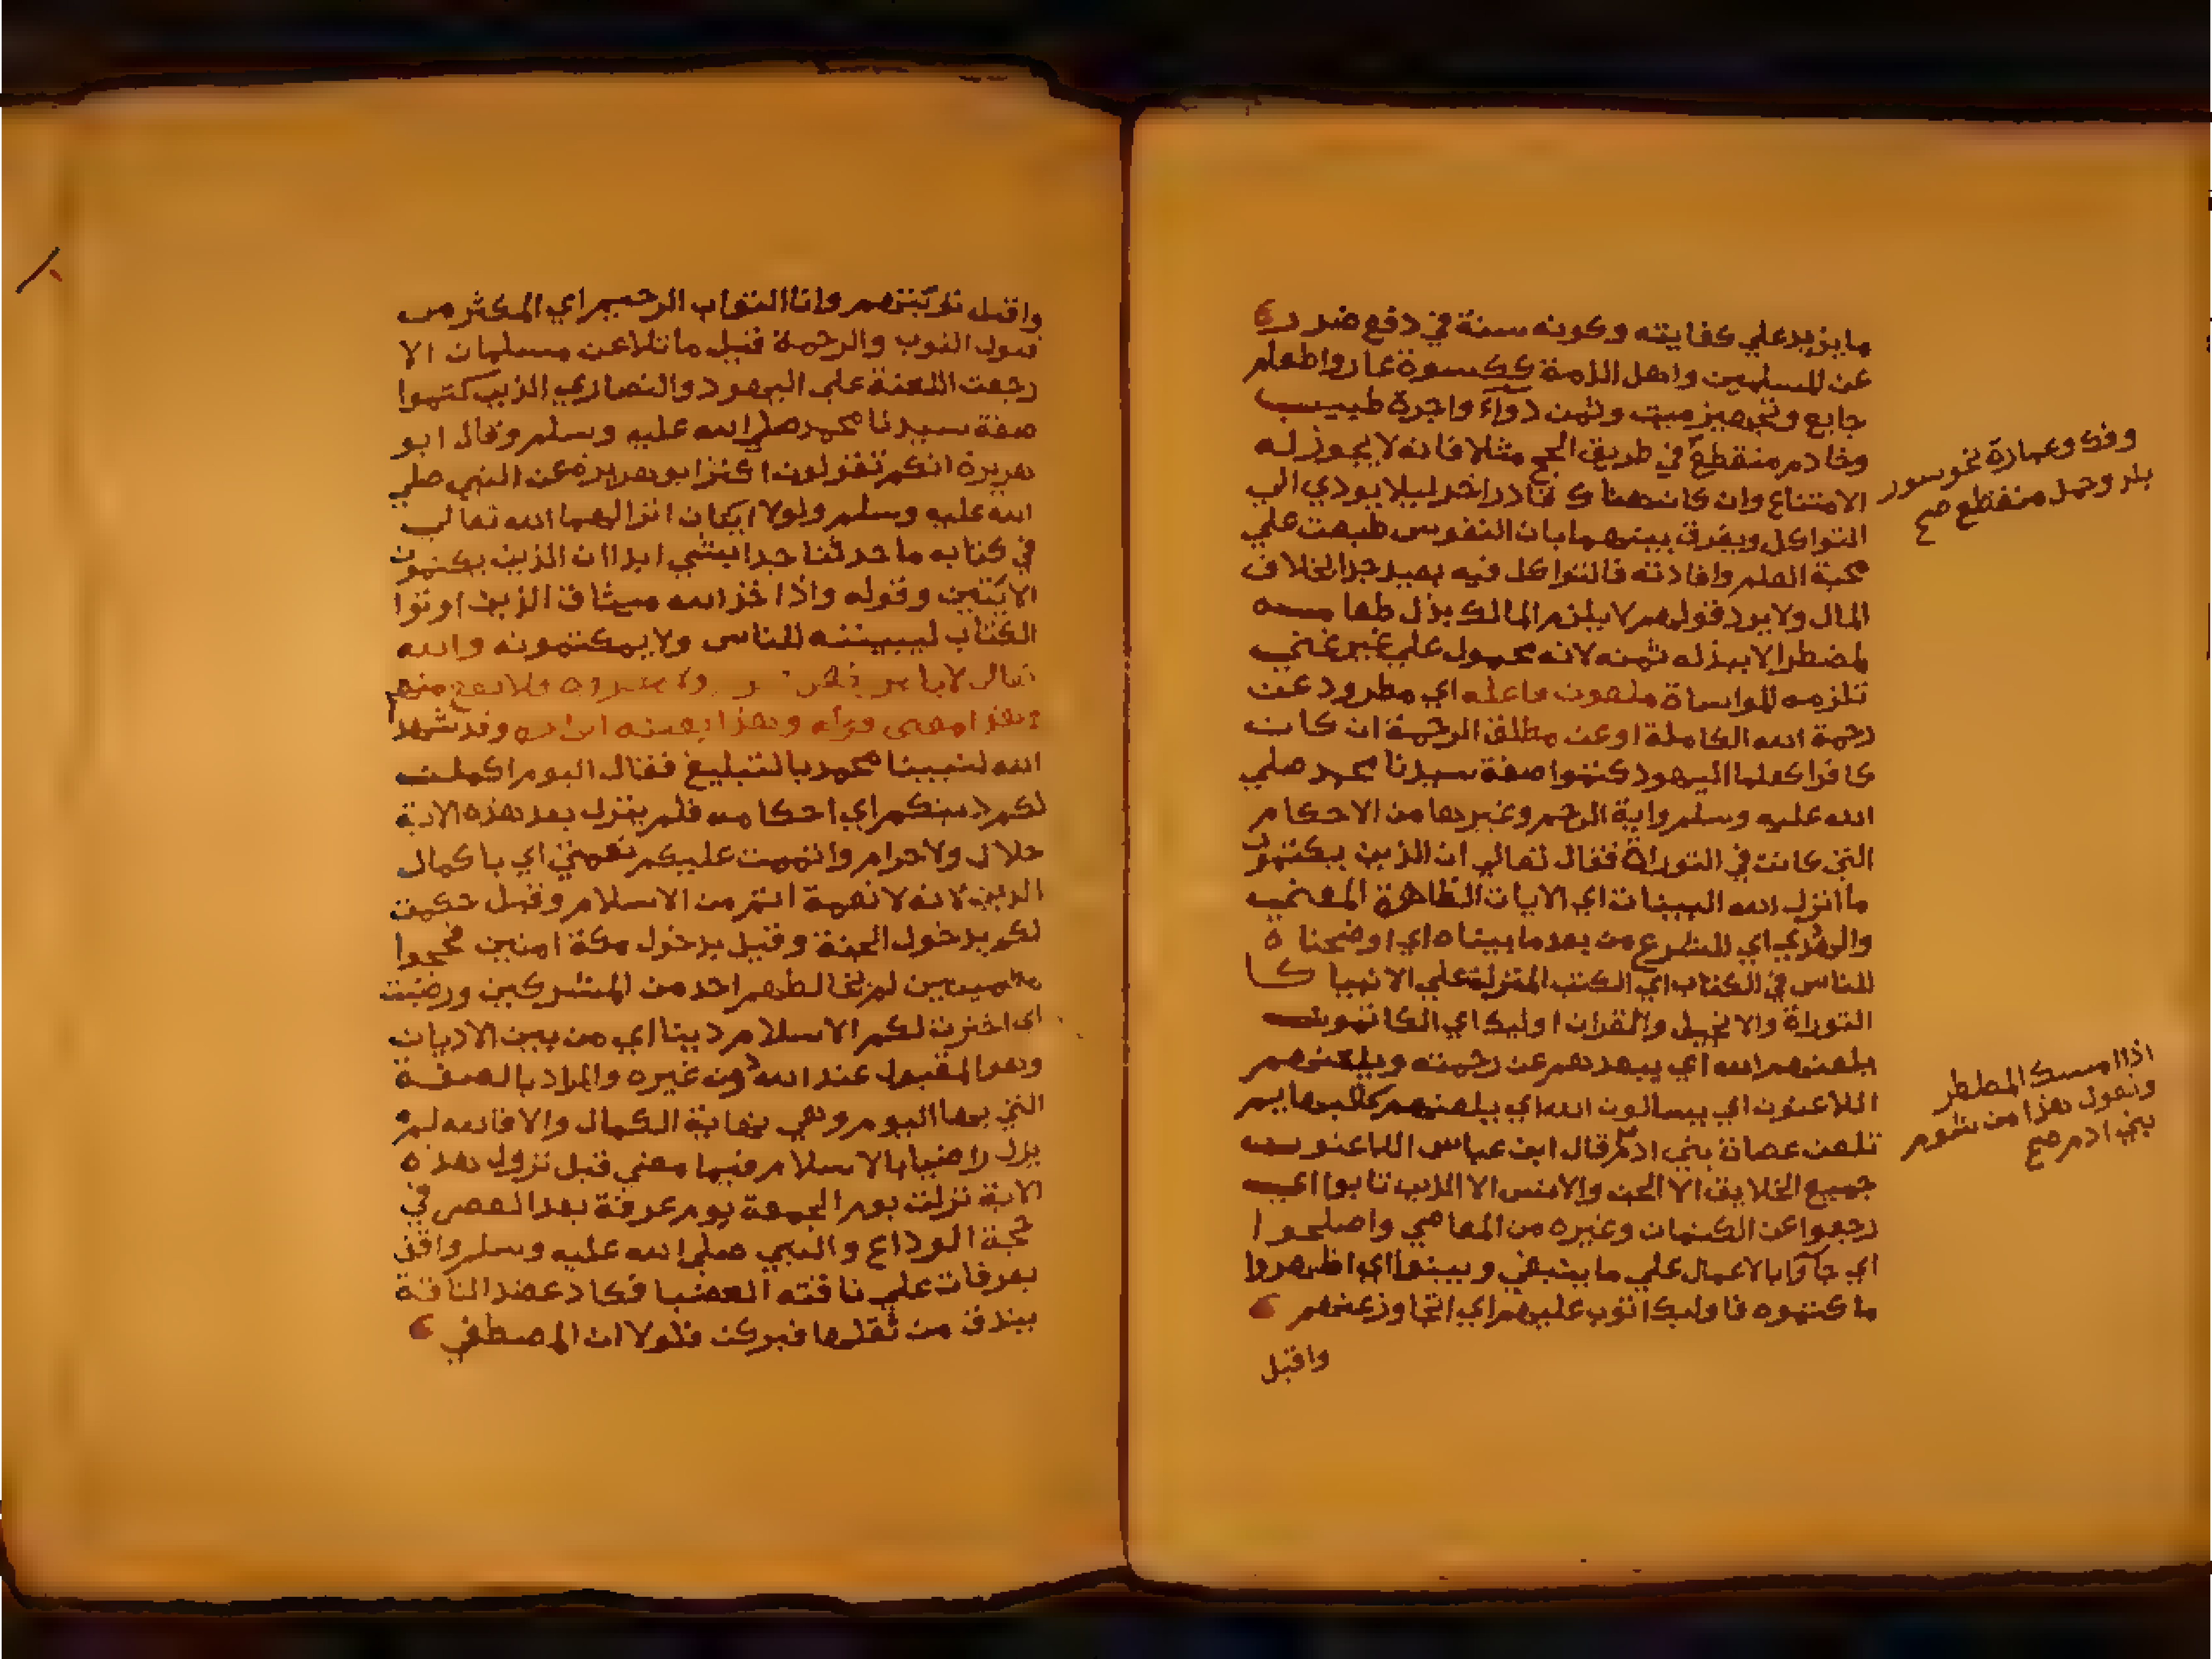 ما يزيد علي كفايته وكونه سنة في دفع ضرر
عن المسلمين واهل الذمة ككسوة عار واطعام
جايع وتجهيز ميت وثمن دوآء واجرة طبيب
وخادم منقطع في طريق الحج مثلا فانه لا يجوز له
الامتناع وان كان هناك قادر اخر ليلا يودي الي
التواكل ويفرق بينهما بان النفوس طبعت علي
محبة العلم وافادته فالتواكل فيه بعيد جدا بخلاف
المال ولا يرد قولهم لا يلزم المالك بذل طعامه
لمضطر الا ببذله ثمنه لانه محمول علي غير غني
تلزمه المواساة ملعون فاعله اي مطرود عن
رحمة الله الكاملة او عن مطلق الرحمة ان كان
كافرا كعلما اليهود كتموا صفة سيدنا محمد صلي
الله عليه وسلم واية الرجم وغيرها من الاحكام
التي كانت في التوراة فقال تعالي ان الذين يكتمون
ما انزل الله البينات اي الايات الظاهرة المعني
والهدي اي الشرع من بعد ما بيناه اي اوضحناه
للناس في الكتاب اي الكتب المنزلة علي الانبيا كا
التوراة والانجيل والقران اوليك اي الكاتمون
يلعنهم الله اي يبعدهم عن رحمته ويلعنهم
اللاعنون اي يسالون الله اي يلعنهم كالبهايم
تلعن عصاة بني ادم قال ابن عباس اللاعنون
جميع الخلايق الا الجن والانس الا الذين تابوا اي
رجعوا عن الكتمان وغيره من المعاصي واصلحوا
اي جآوا بالاعمال علي ما ينبغي وبينوا اي اظهروا
ما كتموه فاوليك اتوب عليهم اي اتجاوز عنهم
واقبل
وفك وعمارة نحو سور
بلد وحمل منقطع صح
اذا امسك المطر
وتقول هذا من شوم
بني ادم صح
واقبل توبتهم وانا التواب الرحيم اي المكثر من
قبول التوب والرحمة قيل ما تلاعن مسلمان الا
رجعت اللعنة علي اليهود والنصاري الذين كتموا
صفة سيدنا محمد صلي الله عليه وسلم وقال ابو
هريرة انكم تقولون اكثر ابو هريرة عن النبي صلي
الله عليه وسلم ولولا ايتان انزالهما الله تعالي
في كتابه ما حدثنا حدا بشي ابدا ان الذين يكتمون
الايتين وقوله واذ اخذ الله ميثاق الذين اوتوا
الكتاب ليبيننه للناس ولا يكتمونه والله
وهذا معني قوله وهذا بعينه وقد شهد
الله لنبينا محمد بالتبليغ فقال اليوم اكملت
لكم دينكم اي احكامه فلم ينزل بعد هذه الاية
حلال ولا حرام واتممت عليكم نعمتي اي باكمال
الدين لانه لا نعمة اتم من الاسلام وقيل حكمت
لكم بدخول الجنة وقيل بدخول مكة امنين فحجوا
لم يخالطهم احد من المشركين ورضيت
اي اخترت لكم الاسلام دينا اي من بين الاديان
وهو المقبول عند الله دون غيره والمراد بالصفة
التي بها اليوم وهي نهاية الكمال والا فالله لم
يزل راضيا بالاسلام فيما معني قبل نزول هذه
الاية نزلت يوم الجمعة يوم عرفة بعد العصر في
حجة الوداع والنبي صلي الله عليه وسلم واقف
بعرفات علي ناقته العضبا فكاد عضد الناقة
يندق من ثقلها فبركت فلولا ان المصطفي